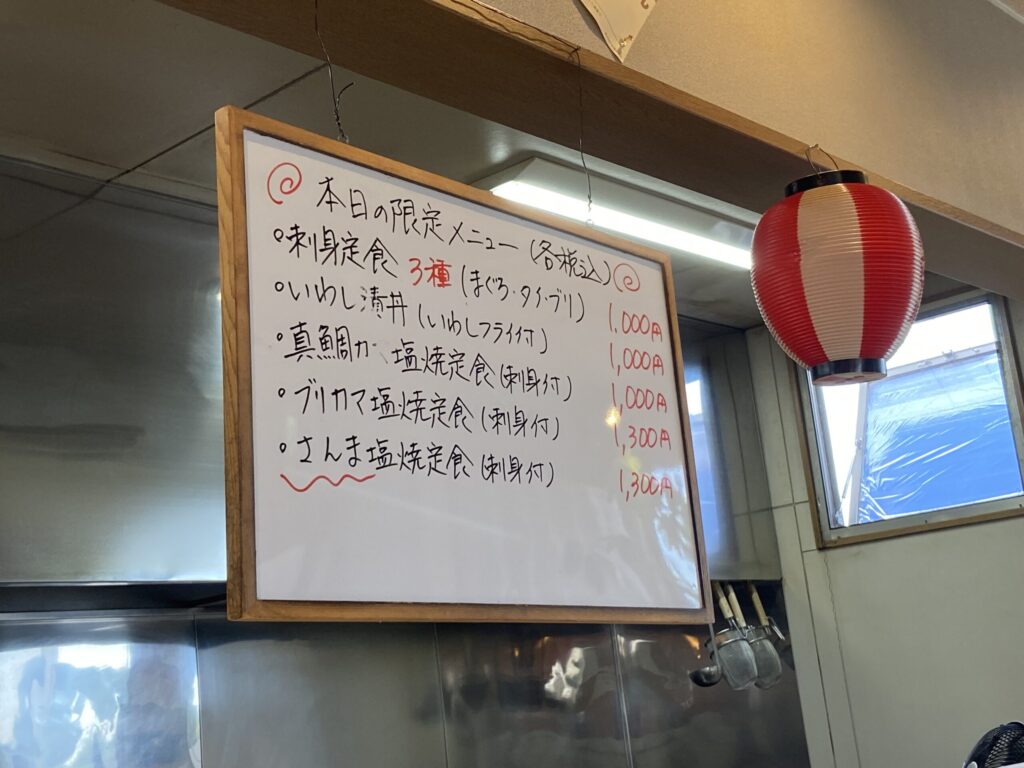 本日の限定メニュー(各税込)
・刺身定食 3種(まぐろ・タイ・ブリ) 1,000円
・いわし漬丼(いわしフライ付) 1,000円
・真鯛カマ塩焼定食(刺身付) 1,000円
・ブリカマ塩焼定食(刺身付) 1,300円
・さんま塩焼定食(刺身付) 1,300円